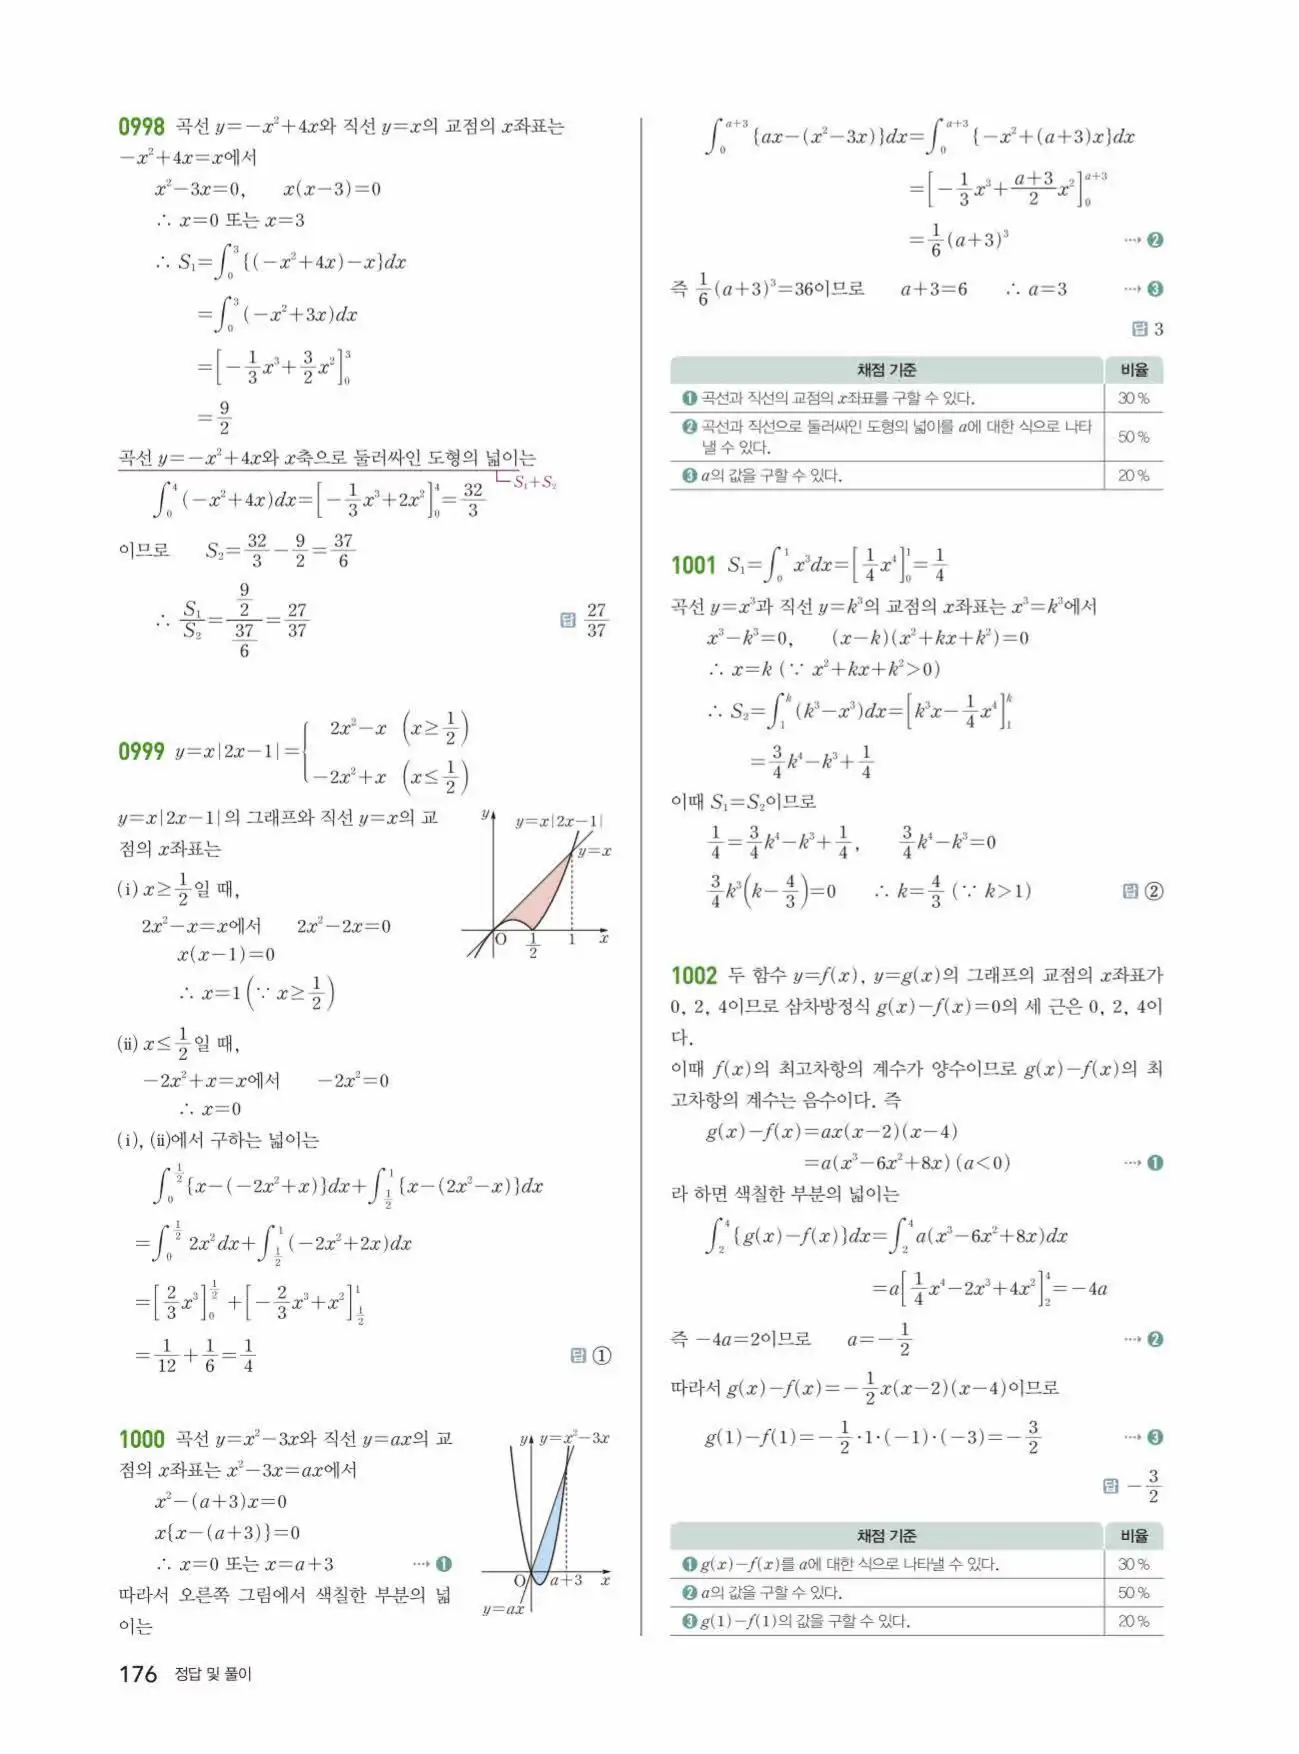 0998 곡선 y=-x²+4x와 직선 y=x의 교점의 x좌표는
-x²+4x=x에서
x²-3x=0, x(x-3)=0
∴ x=0 또는 x=3
∴ S₁=∫₀³{(-x²+4x)-x}dx
=∫₀³(-x²+3x)dx
=[-1/3x³+3/2x²]₀³
=9/2
곡선 y=-x²+4x와 x축으로 둘러싸인 도형의 넓이는
S₁+S₂
∫₀⁴(-x²+4x)dx=[-1/3x³+2x²]₀⁴=32/3
이므로 S₂=32/3-9/2=37/6
∴ S₁/S₂=(9/2)/(37/6)=27/37 답 27/37
0999 y=x|2x-1|={2x²-x (x≥1/2)
-2x²+x (x≤1/2)
y=x|2x-1|의 그래프와 직선 y=x의 교
점의 x좌표는
(ⅰ) x≥1/2일 때,
2x²-x=x에서 2x²-2x=0
x(x-1)=0
∴ x=1(∵ x≥1/2)
y y=x|2x-1|
y=x
O 1/2 1 x
(ⅱ) x≤1/2일 때,
-2x²+x=x에서 -2x²=0
∴ x=0
(ⅰ), (ⅱ)에서 구하는 넓이는
∫₀^(1/2){x-(-2x²+x)}dx+∫_(1/2)^1{x-(2x²-x)}dx
=∫₀^(1/2) 2x²dx+∫_(1/2)^1(-2x²+2x)dx
=[2/3x³]₀^(1/2)+[-2/3x³+x²]_(1/2)^1
=1/12+1/6=1/4 답 ①
1000 곡선 y=x²-3x와 직선 y=ax의 교
점의 x좌표는 x²-3x=ax에서
x²-(a+3)x=0
x{x-(a+3)}=0
∴ x=0 또는 x=a+3 ⋯→ ❶
따라서 오른쪽 그림에서 색칠한 부분의 넓
이는
y y=x²-3x
O a+3 x
y=ax
∫₀^(a+3){ax-(x²-3x)}dx=∫₀^(a+3){-x²+(a+3)x}dx
=[-1/3x³+(a+3)/2x²]₀^(a+3)
=1/6(a+3)³ ⋯→ ❷
즉 1/6(a+3)³=36이므로 a+3=6 ∴ a=3 ⋯→ ❸
답 3
채점 기준 비율
❶ 곡선과 직선의 교점의 x좌표를 구할 수 있다. 30 %
❷ 곡선과 직선으로 둘러싸인 도형의 넓이를 a에 대한 식으로 나타
낼 수 있다. 50 %
❸ a의 값을 구할 수 있다. 20 %
1001 S₁=∫₀¹x³dx=[1/4x⁴]₀¹=1/4
곡선 y=x³과 직선 y=k³의 교점의 x좌표는 x³=k³에서
x³-k³=0, (x-k)(x²+kx+k²)=0
∴ x=k (∵ x²+kx+k²>0)
∴ S₂=∫₁ᵏ(k³-x³)dx=[k³x-1/4x⁴]₁ᵏ
=3/4k⁴-k³+1/4
이때 S₁=S₂이므로
1/4=3/4k⁴-k³+1/4, 3/4k⁴-k³=0
3/4k³(k-4/3)=0 ∴ k=4/3 (∵ k>1) 답 ②
1002 두 함수 y=f(x), y=g(x)의 그래프의 교점의 x좌표가
0, 2, 4이므로 삼차방정식 g(x)-f(x)=0의 세 근은 0, 2, 4이
다.
이때 f(x)의 최고차항의 계수가 양수이므로 g(x)-f(x)의 최
고차항의 계수는 음수이다. 즉
g(x)-f(x)=ax(x-2)(x-4)
=a(x³-6x²+8x) (a<0) ⋯→ ❶
라 하면 색칠한 부분의 넓이는
∫₂⁴{g(x)-f(x)}dx=∫₂⁴a(x³-6x²+8x)dx
=a[1/4x⁴-2x³+4x²]₂⁴=-4a
즉 -4a=2이므로 a=-1/2 ⋯→ ❷
따라서 g(x)-f(x)=-1/2x(x-2)(x-4)이므로
g(1)-f(1)=-1/2·1·(-1)·(-3)=-3/2 ⋯→ ❸
답 -3/2
채점 기준 비율
❶ g(x)-f(x)를 a에 대한 식으로 나타낼 수 있다. 30 %
❷ a의 값을 구할 수 있다. 50 %
❸ g(1)-f(1)의 값을 구할 수 있다. 20 %
176 정답 및 풀이